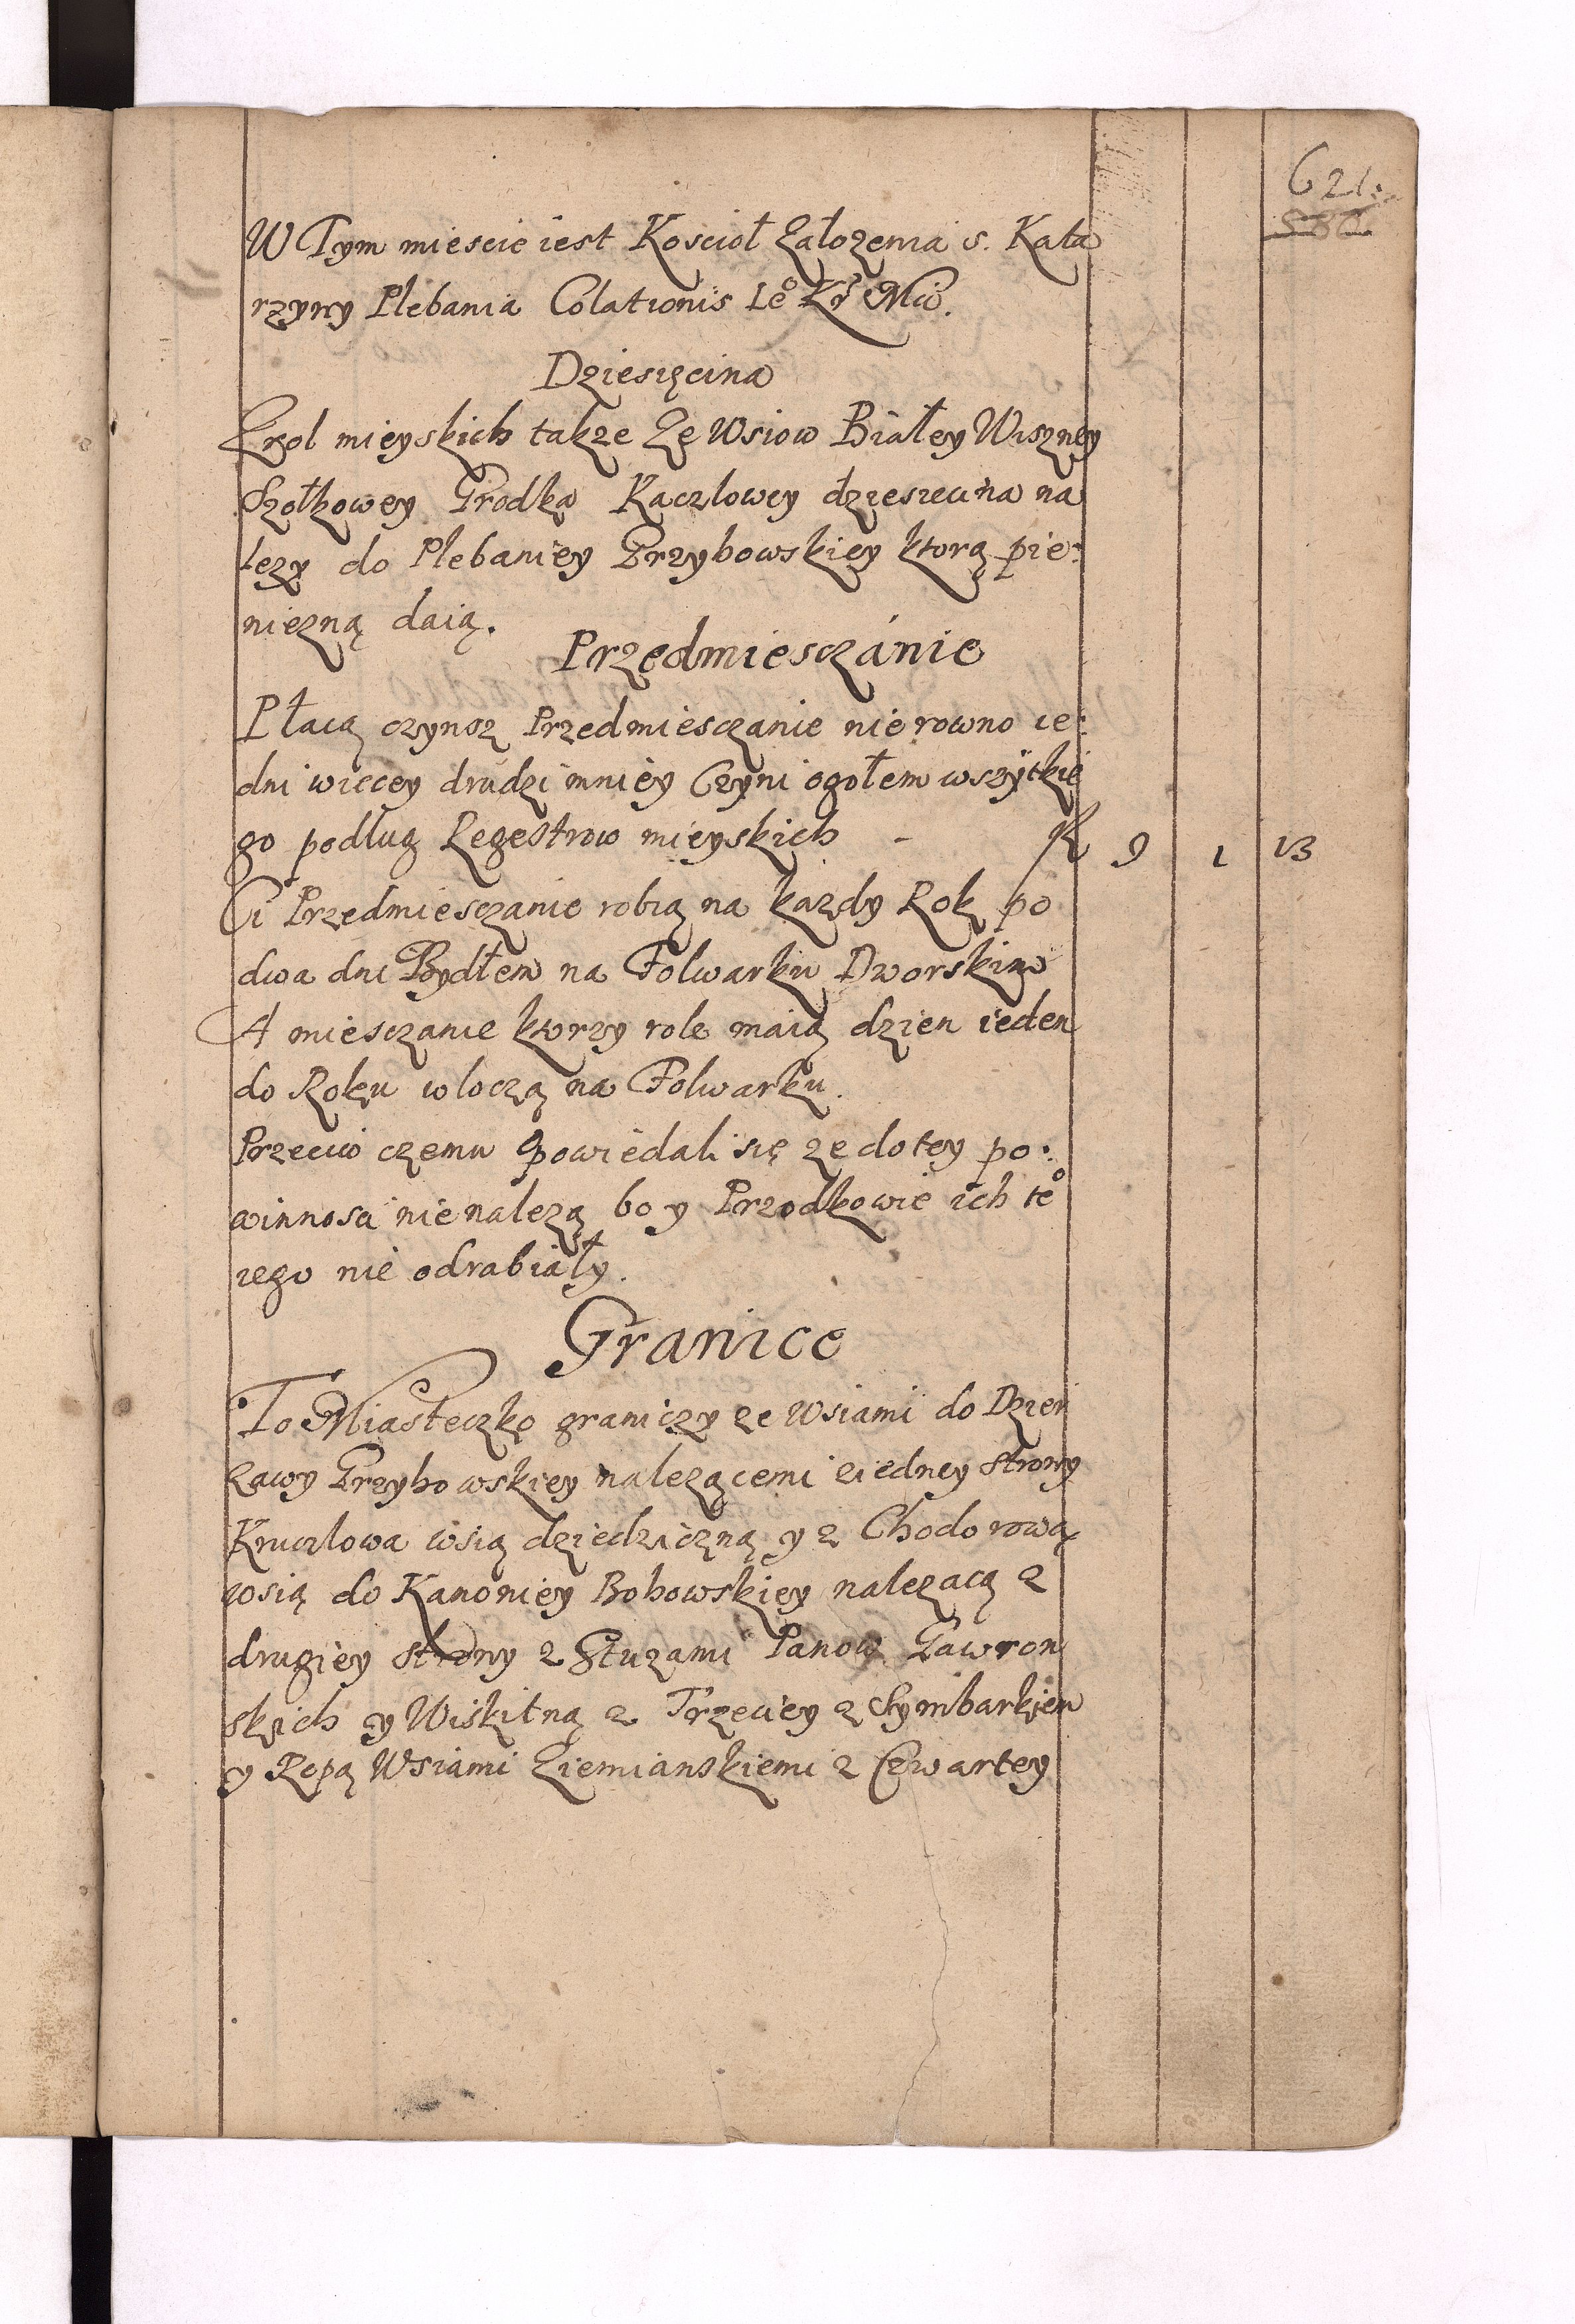 621.
W Tym miescie iest Koscioł Załozenia s. Kata
rzyny Plebania Colationis Ieº Kr Mci.
Dziesięcina
Z rol mieyskich takze Ze Wsiow Białey Wiszney
Szołkowey Grodka Kączlowey dziesiecina na
lezy do Plebaniey Grzybowskiey ktorą pie:
niezną daią.
Przedmiesczánie
Płacą czynsz Przedmiesczanie nie rowno ie:
dni wiecey drudzi mniey Czyni ogołem wszytkie
go podług Regestrow mieyskich - K 9 1 13
Ci Przedmiesczanie robią na kazdy Rok po
dwa dni Bydłem na Folwarku Dworskim
A miesczanie ktorzy role maią dzien ieden
do Roku wloczą na Folwarku.
Przeciw czemu opowiedali się ze do tey po:
winnosci nie nalezą bo y Przodkowie ich teº
iego nie odrabiały.
Granice
To Miasteczko graniczy ze Wsiami do Dzier
zawy Grzybowskiey nalezącemi z iedney strony
Kruczlowa wsią dziedziczną y z Chodorową
wsią do Kanoniey Bobowskiey nalezacą z
drugiey strony z Stuzami Panow Gawron
skich y Wiskitną z Trzeciey z Symbarkiem
y Ropą Wsiami Ziemianskiemi z Czwartey